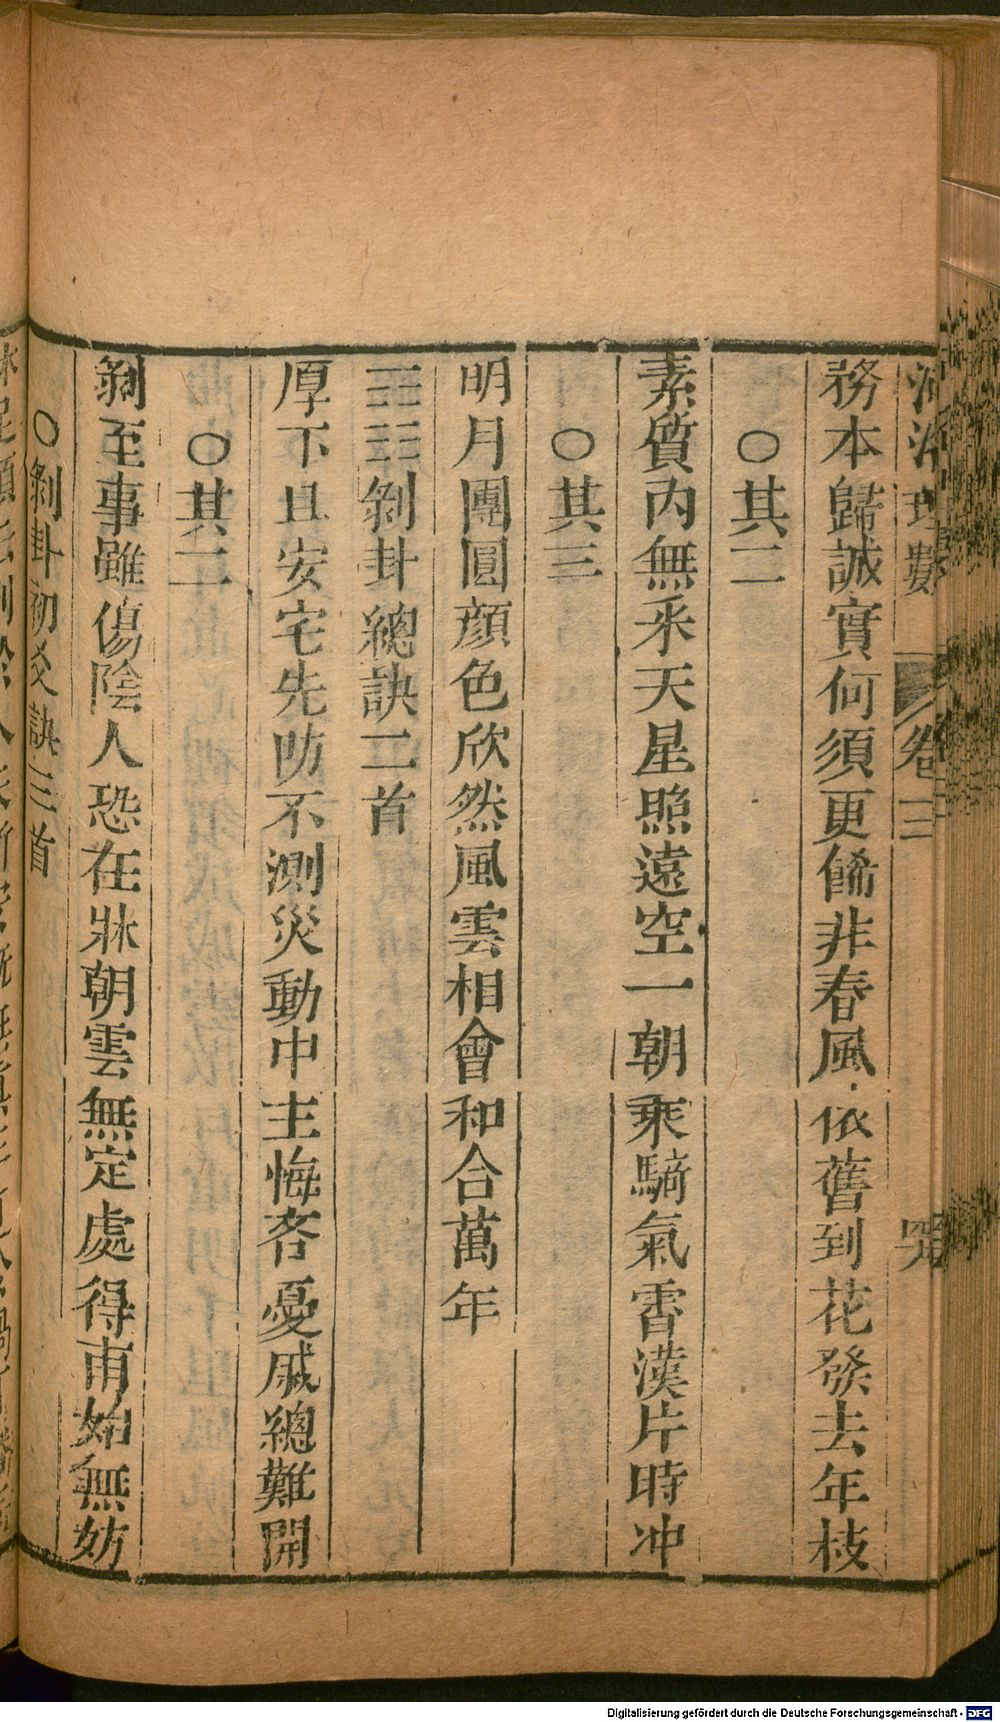 河洛理數 卷三
務本歸誠實何須更餙非春風依舊到花發去年枝
○其二
素質内無釆天星照遠空一朝乘驕氣霄漢片時冲
○其三
明月團圓顔色欣然風雲相會和合萬年
剝卦總訣二首
厚下且安宅先防不測災動中主悔吝憂戚總難開
○其二
剝至事雖傷陰人恐在牀朝雲無定處得甫婦無妨
○剝卦初爻訣三首
Digitalisierung gefördert durch die Deutsche Forschungsgemeinschaft - DFG